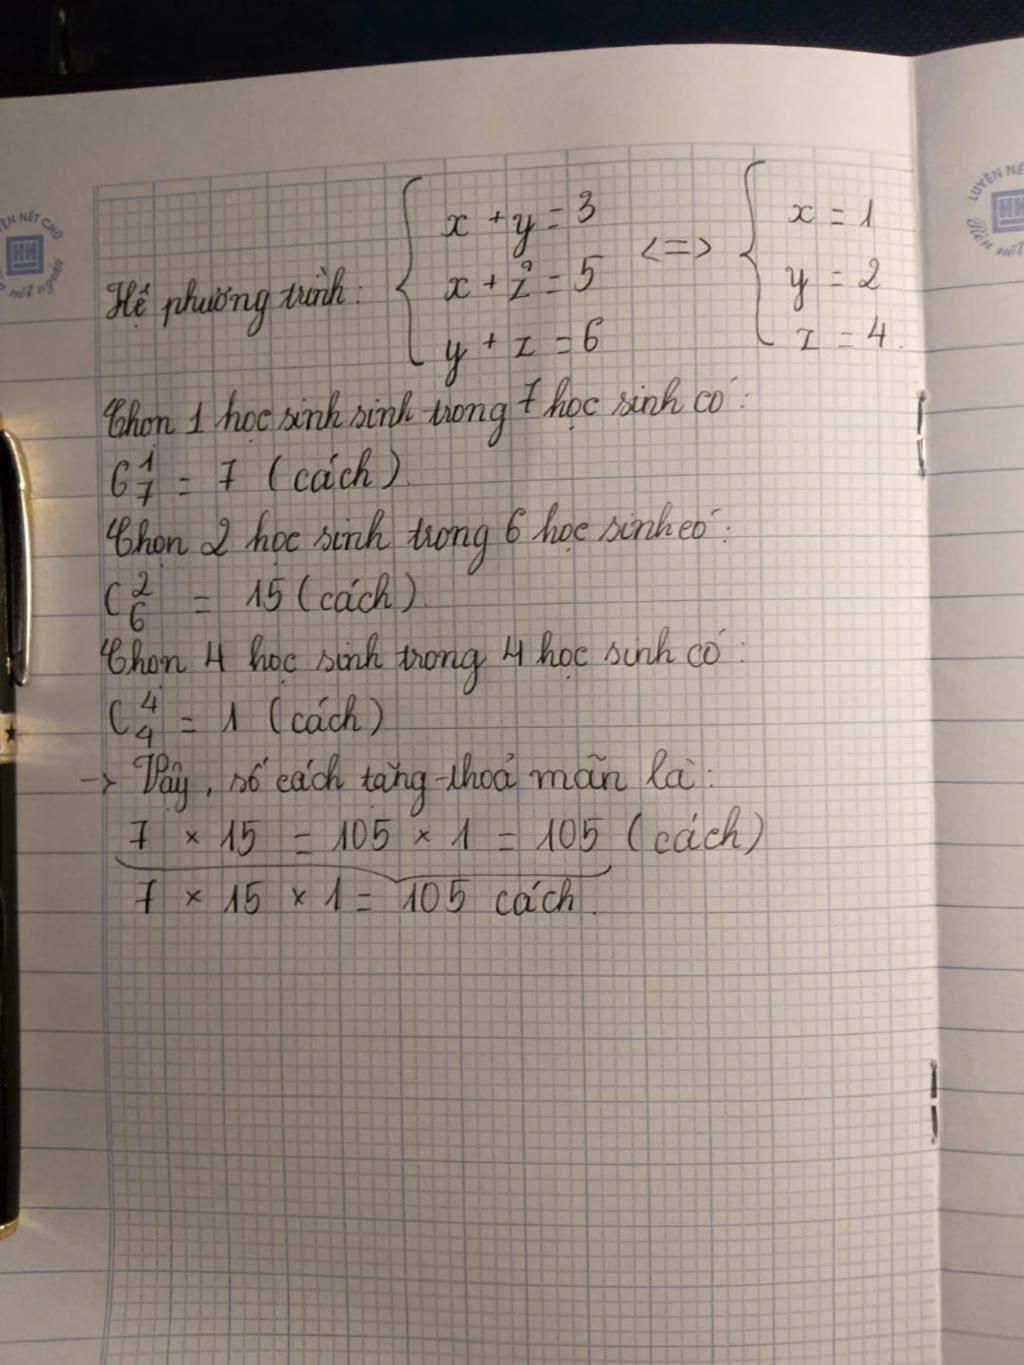 Hệ phương trình: { x + y = 3 <=> { x = 1
x + z = 5 y = 2
y + z = 6 z = 4.
Chọn 1 học sinh sinh trong 7 học sinh có:
C¹₇ = 7 (cách)
Chọn 2 học sinh trong 6 học sinh có:
C²₆ = 15 (cách)
Chọn 4 học sinh trong 4 học sinh có:
C⁴₄ = 1 (cách)
-> Vậy, số cách tặng thoả mãn là:
7 × 15 = 105 × 1 = 105 (cách)
7 × 15 × 1 = 105 cách.
HH
LUYỆN NÉ
HH